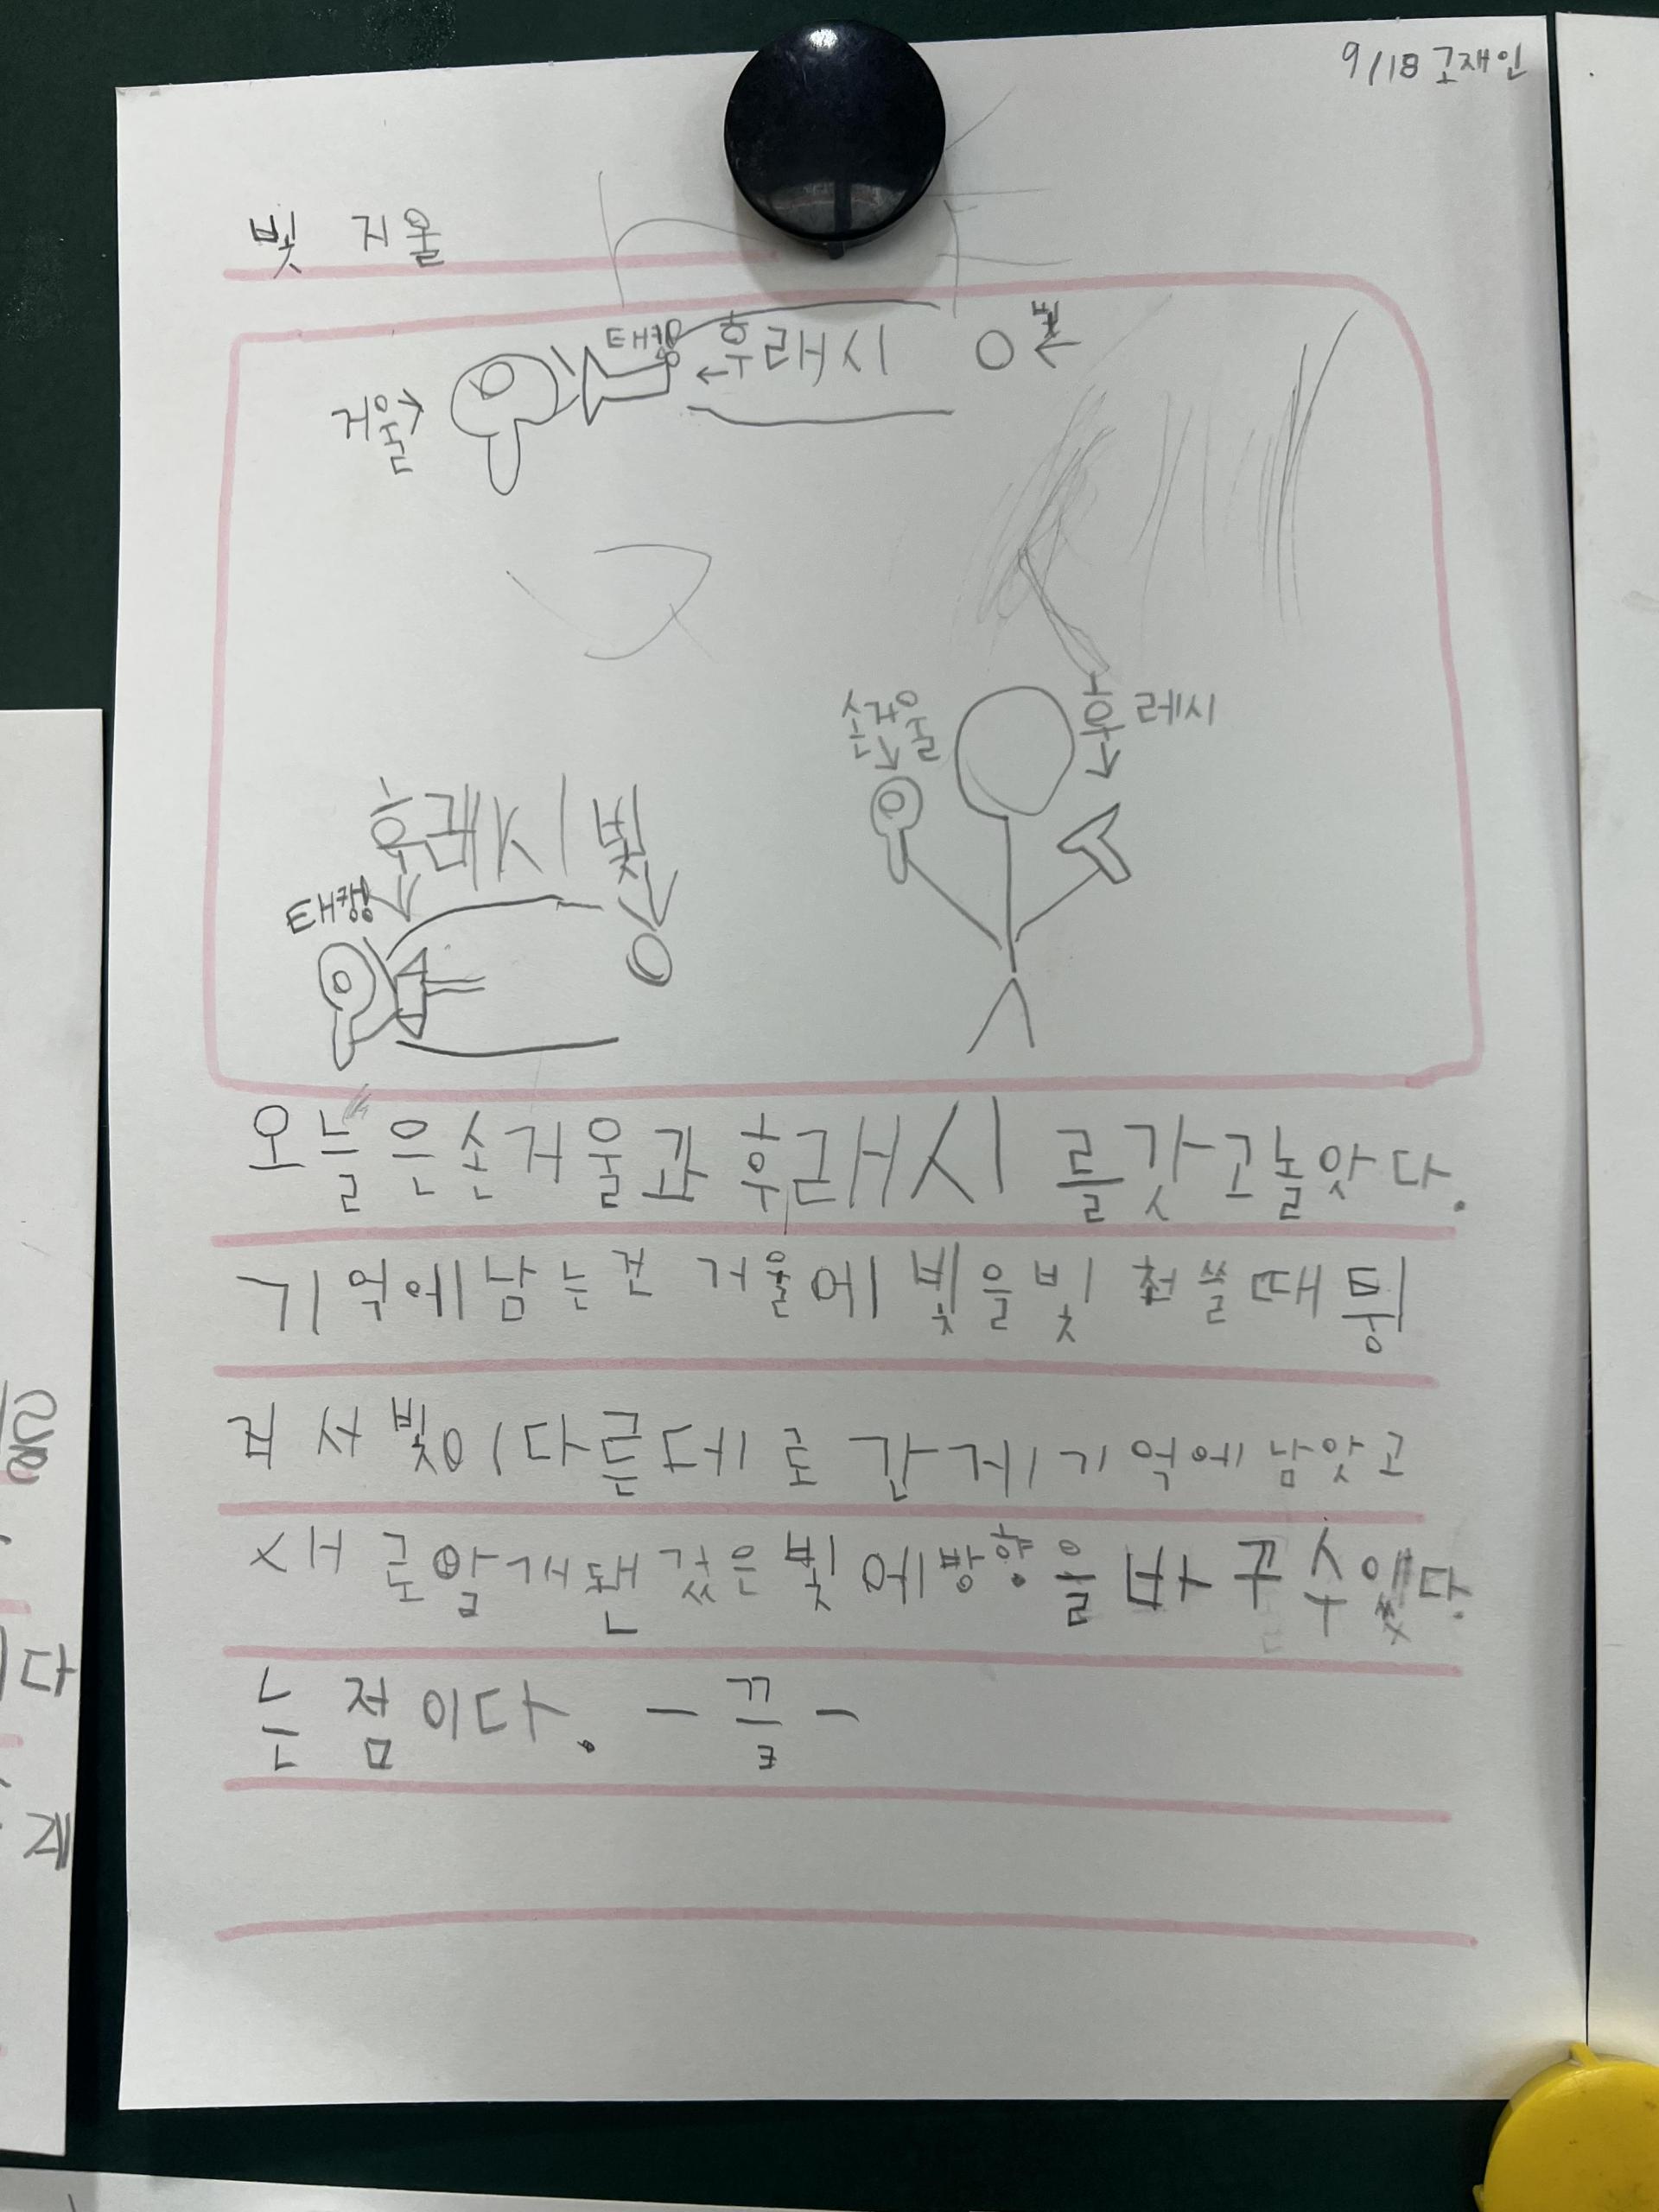 9/18 고재인
빛 지울
태킹 후래시 빛
거울
손거울 후레시
후래시 빛
태캥
오늘은손거울과 후래시를갓고놀앗다.
기억에남는건 거울에 빛을빛 쳐쓸때 튕
겨서 빛이다른데로간게기억에남앗고
새로알개됀겄은빛에방향을바꾸수잇다
는점이다. -끝-
다